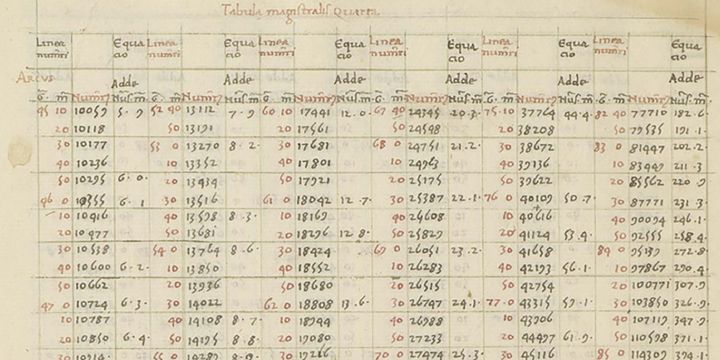 Tabula magistralis Quarta
Linea numeri Equacio Linea numeri Equacio Linea numeri Equacio Linea numeri Equacio Linea numeri Equacio Linea numeri Equacio
Arcus Adde Adde Adde Adde Adde Adde
45 10 10059 5·9 52 40 13112 7·9 60 10 17441 12·0· 67 40 24345 20·3· 75 10 37764 44·4· 82 40 77710 182·6·
20 10118 50 13191 20 17561 50 24548 20 38208 50 79535 191·1·
30 10177 53 0 13270 8·2· 30 17681 68 0 24751 21·2· 30 38672 83 0 81447 202·2·
40 10236 10 13352 40 17801 10 24963 40 39136 10 83449 211·3
50 10295 6·0· 20 13434 50 17921 20 25175 50 39622 20 85562 220·9
46 0 10355 6·1 30 13516 61 0 18042 12·7· 30 25387 22·1· 76 0 40109 50·7· 30 87771 231·3·
10 10416 40 13598 8·3· 10 18169 40 25608 10 40616 40 90094 246·1·
20 10477 50 13681 20 18296 12·8· 50 25829 20 41124 53·4· 50 92555 258·4·
30 10538 54 0 13764 8·6· 30 18424 69 0 26051 23·2· 30 41658 84 0 95139 272·8
40 10600 6·2· 10 13850 40 18552 10 26283 40 42193 56·1· 10 97867 290·4·
50 10662 20 13936 50 18680 20 26515 50 42754 20 100771 307·9
47 0 10724 6·3· 30 14022 62 0 18808 13·6· 30 26747 24·1· 77 0 43315 59·1· 30 103850 326·9
10 10787 40 14108 8·7· 10 18944 40 26988 10 43906 40 107119 347·9
20 10850 6·4· 50 14195 8·8· 20 19080 50 27233 20 44497 61·9· 50 110598 371·1·
30 10914 55 0 14282 8·9· 30 19216 70 0 27474 25·3· 30 45116 85 0 114309 394·1